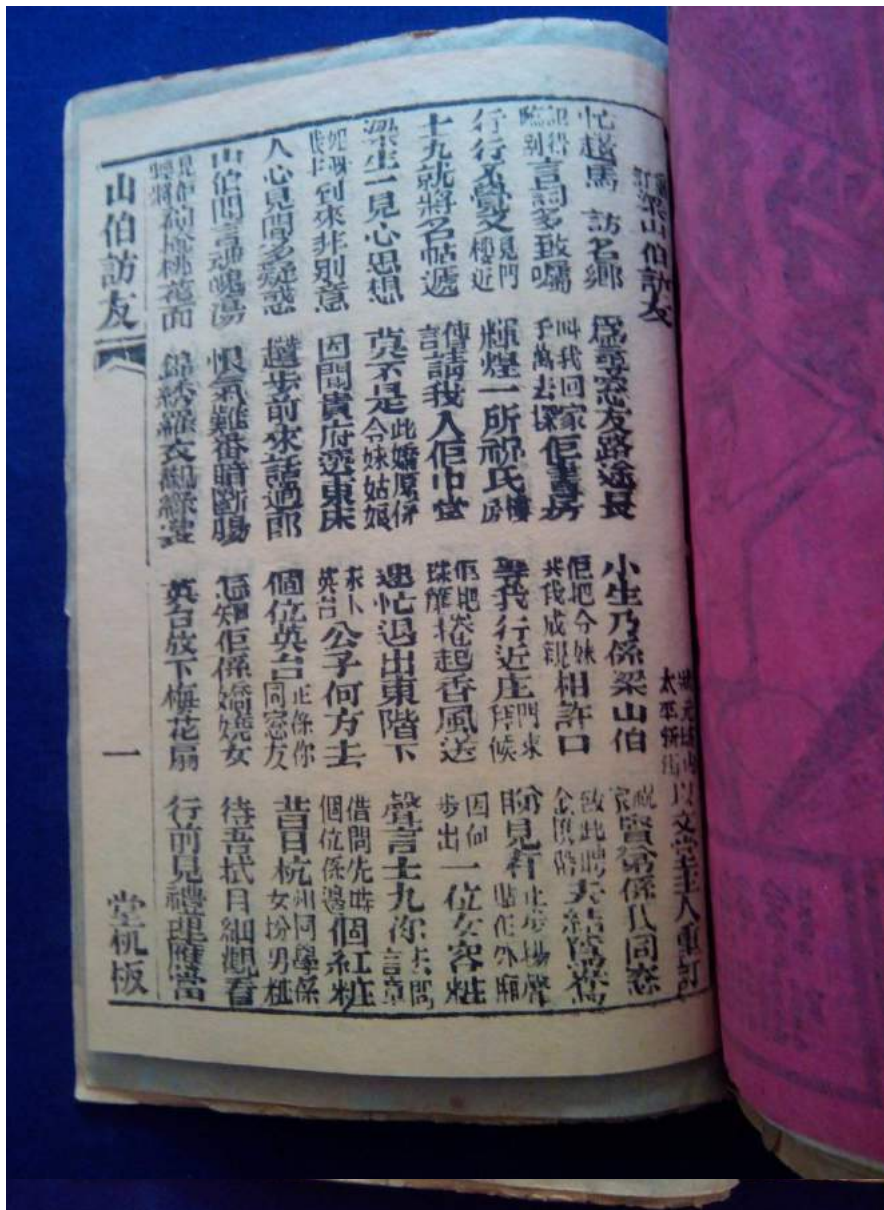 重訂梁山伯訪友 狀元坊內太平新街以文堂主人重訂
忙趲馬 訪名鄉 為尋窓友路途長 小生乃係梁山伯 祝家賢弟係仄同窓
臨别言詞多致囑 叫我回家千萬去探佢書房 佢把令妹共我成親相許口 致此聘
行行不覺 見門樓近 輝煌一所祝氏樓房 等我行近庄門來拜候 見 止
士九就將名帖遞 傳請我入佢中堂 珠簾 起香風送 因何步出一位女客粧
梁生一見心思想 莫不是此嬌原係令妹姑娘 連忙退出東階下 聲言士九你去問言章
到來非別意 因聞貴府選東床 英台公子何方去 借問先時個位係邊個紅粧
人心見問多疑惑 趲步前來話過郎 個位英台正係你同窓友 昔日杭州同學係女扮男粧
山伯聞言魂魄蕩 恨氣難番暗斷腸 怎知佢係嬌嬈女 待吾拭目細觀看
桃花面 錦綉羅衣 綠裳 英台放下梅花扇 行前見禮 應當
山伯訪友 一 堂机板